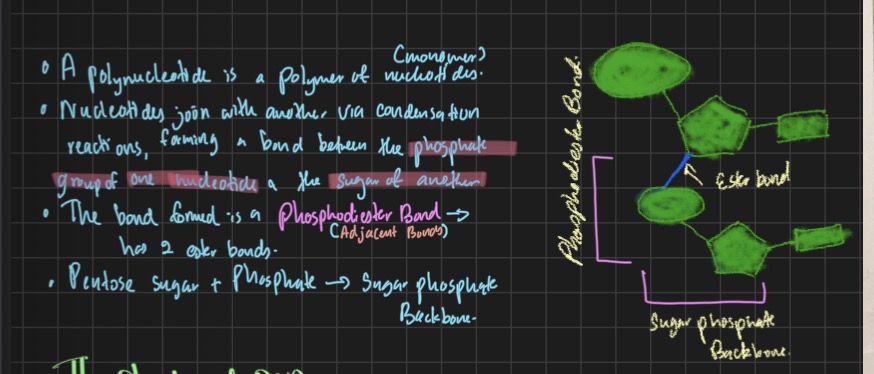 (monomer)
• A polynucleotide is a polymer of nucleotides.
• Nucleotides join with another via condensation
reactions, forming a bond between the phosphate
group of one nucleotide & the sugar of another
• The bond formed is a Phosphodiester Bond →
(Adjacent Bonds)
has 2 ester bonds.
• Pentose sugar + Phosphate → Sugar phosphate
Backbone.
Phosphodiester Bond.
Ester bond
Sugar phosphate
Backbone.